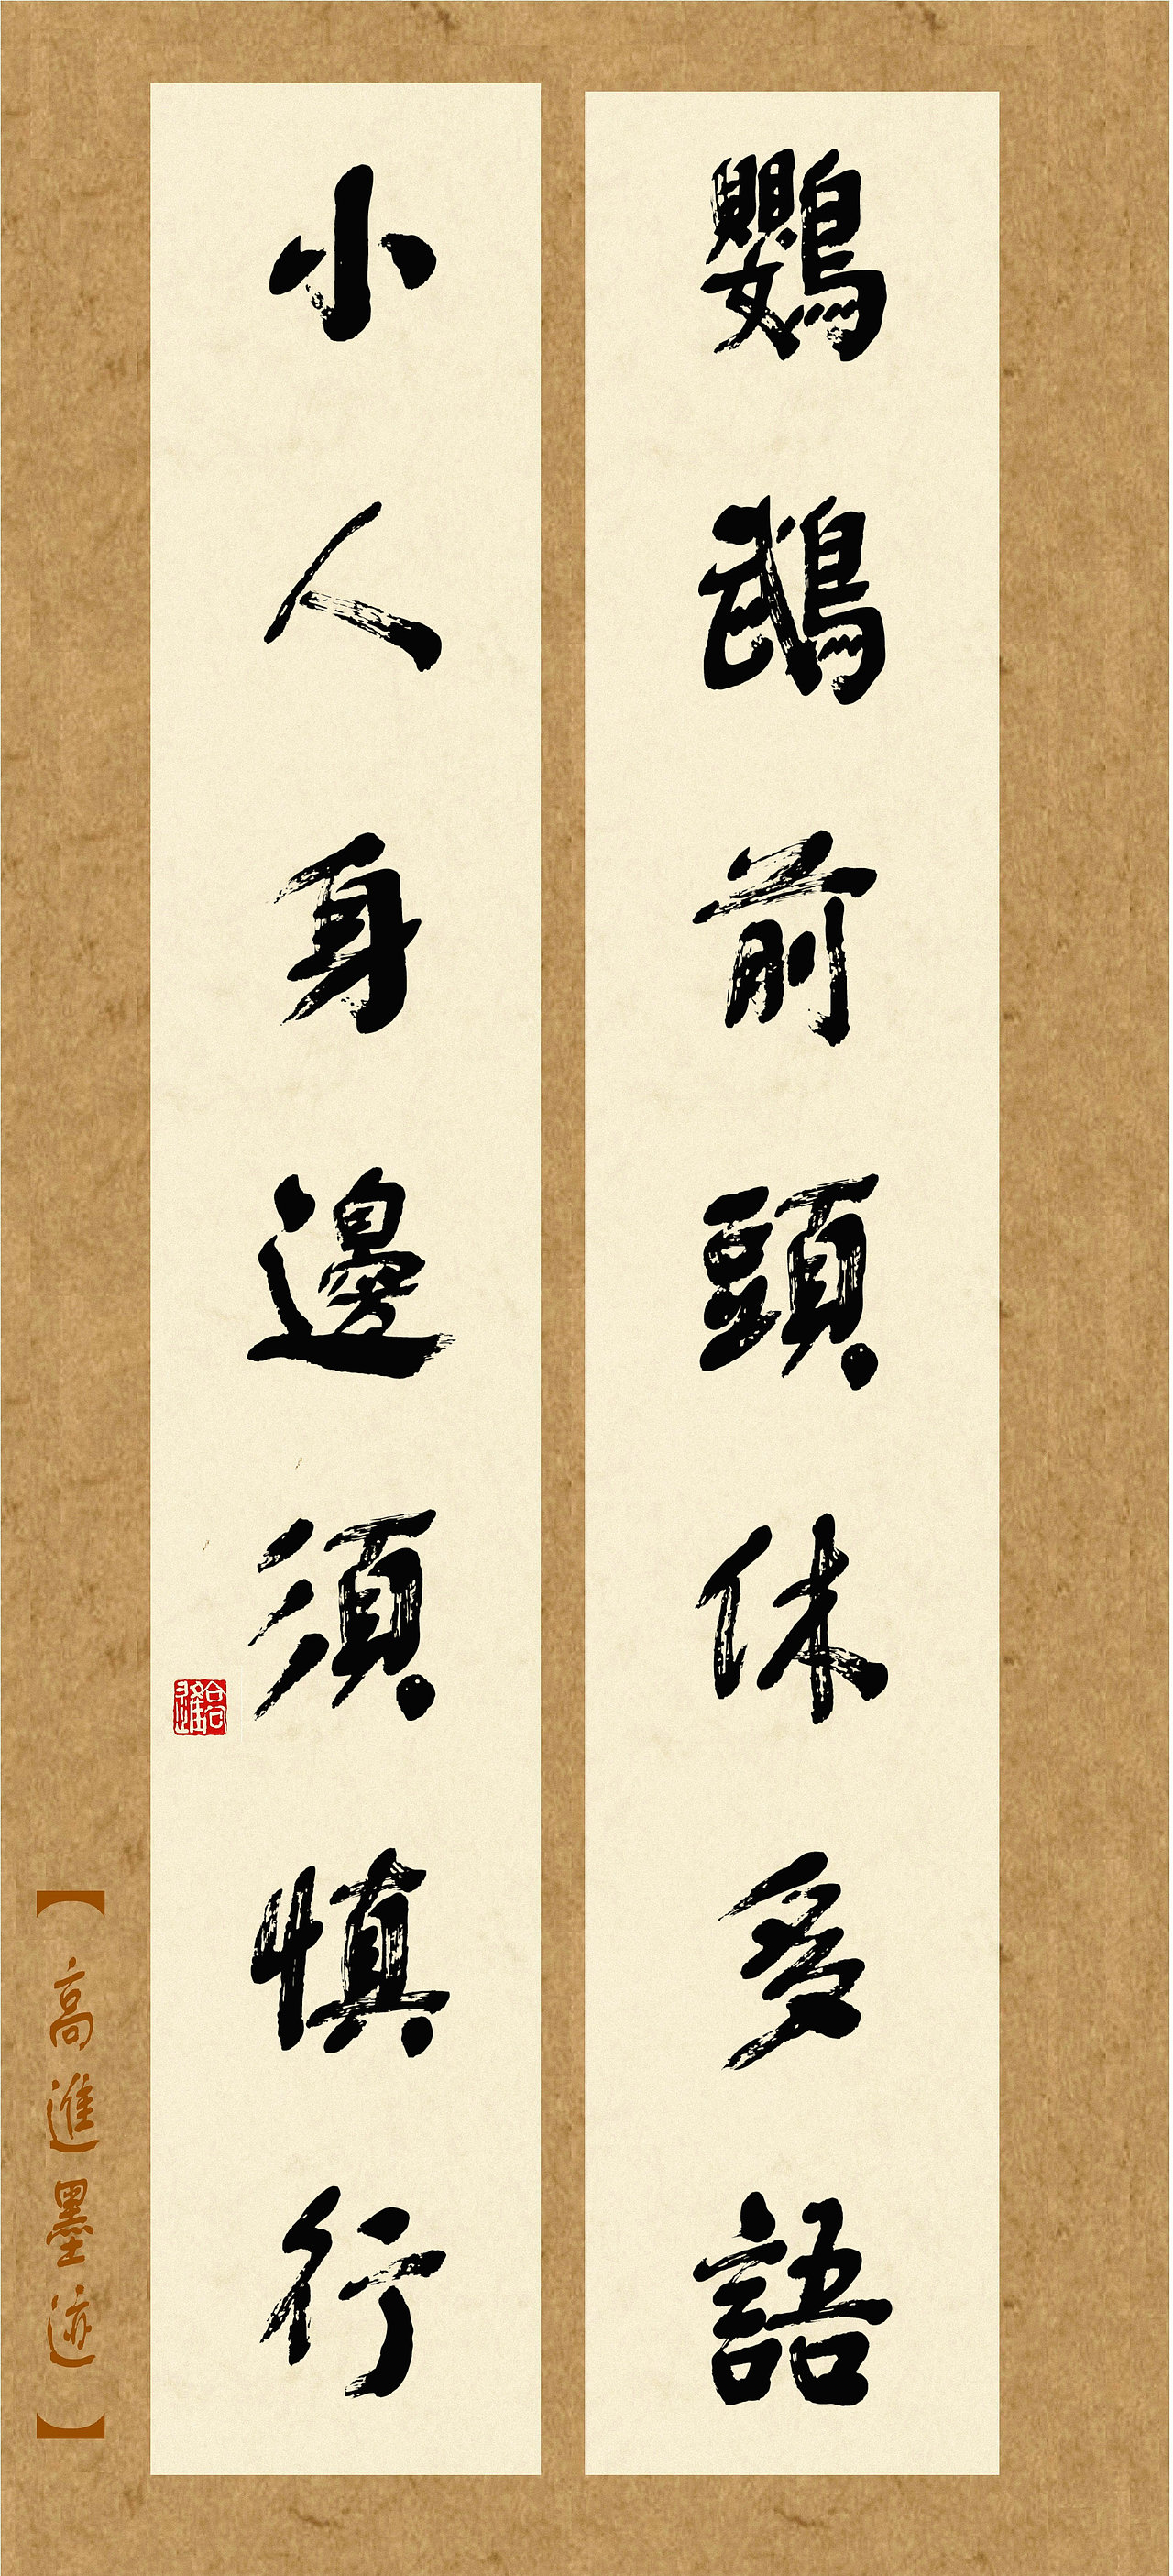 鸚鵡前頭休多語
小人身邊須慎行
高進
【高進墨迹】